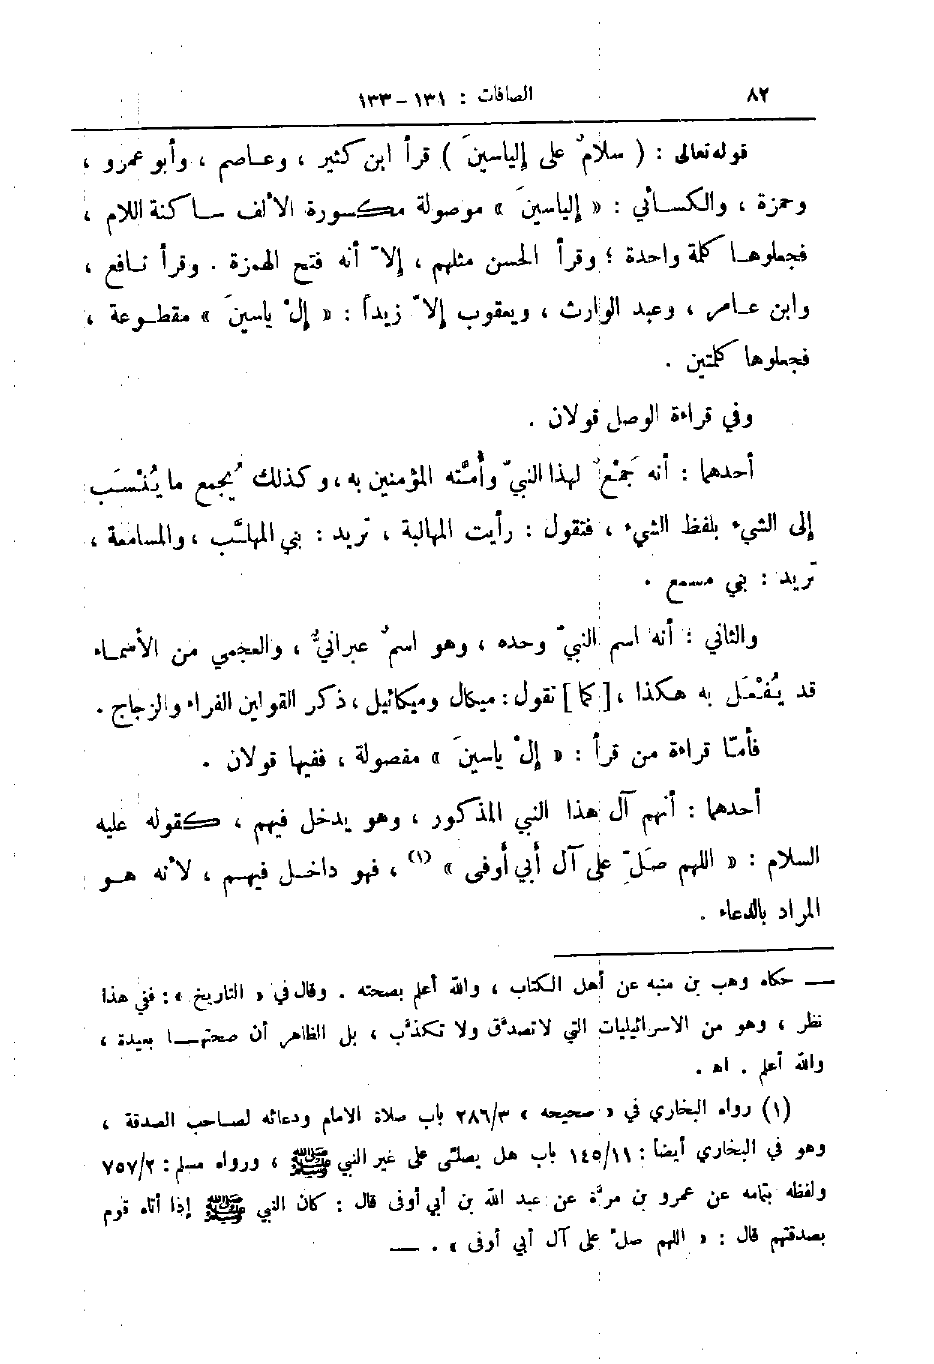 ٨٢
الصافات : ١٣١ – ١٣٣
قوله تعالى : ( سلامٌ على إلياسينَ ) قرأ ابن كثير ، وعاصم ، وأبو عمرو ،
وحمزة ، والكسائي : « إلياسينَ » موصولة مكسورة الألف ساكنة اللام ،
فجعلوها كلمة واحدة ؛ وقرأ الحسن مثلهم ، إلاّ أنه فتح الهمزة . وقرأ نافع ،
وابن عامر ، وعبد الوارث ، ويعقوب إلاّ زيداً : « إلْ ياسينَ » مقطوعة ،
فجعلوها كلمتين .
وفي قراءة الوصل قولان .
أحدهما : أنه جَمْعٌ لهذا النبيّ وأُمَّته المؤمنين به ، وكذلك يُجمع ما يُنْسَب
إلى الشيء بلفظ الشيء ، فتقول : رأيت المهالبة ، تريد : بني المهلَّب ، والمسامعة ،
تريد : بني مسمع .
والثاني : أنه اسم النبيّ وحده ، وهو اسمٌ عبرانيٌّ ، والعجمي من الأسماء
قد يُفْعَل به هكذا ، [ كما ] تقول : ميكال وميكائيل ، ذكر القولين الفراء والزجاج .
فأمّا قراءة من قرأ : « إلْ ياسينَ » مفصولة ، ففيها قولان .
أحدهما : أنهم آل هذا النبي المذكور ، وهو يدخل فيهم ، كقوله عليه
السلام : « اللهم صَلِّ على آل أبي أوفى » (١) ، فهو داخل فيهم ، لأنه هو
المراد بالدعاء .
— حكاه وهب بن منبه عن أهل الكتاب ، والله أعلم بصحته . وقال في « التاريخ » : ففي هذا
نظر ، وهو من الاسرائيليات التي لا تصدَّق ولا تكذَّب ، بل الظاهر أن صحتها بعيدة ،
والله أعلم . اه .
(١) رواه البخاري في « صحيحه » ٢٨٦/٣ باب صلاة الامام ودعائه لصاحب الصدقة ،
وهو في البخاري أيضاً : ١٤٥/١١ باب هل يصلّى على غير النبي ﷺ ، ورواه مسلم : ٧٥٧/٢
ولفظه بتمامه عن عمرو بن مرَّة عن عبد الله بن أبي أوفى قال : كان النبي ﷺ إذا أتاه قوم
بصدقتهم قال : « اللهم صلْ على آل أبي أوفى » . —